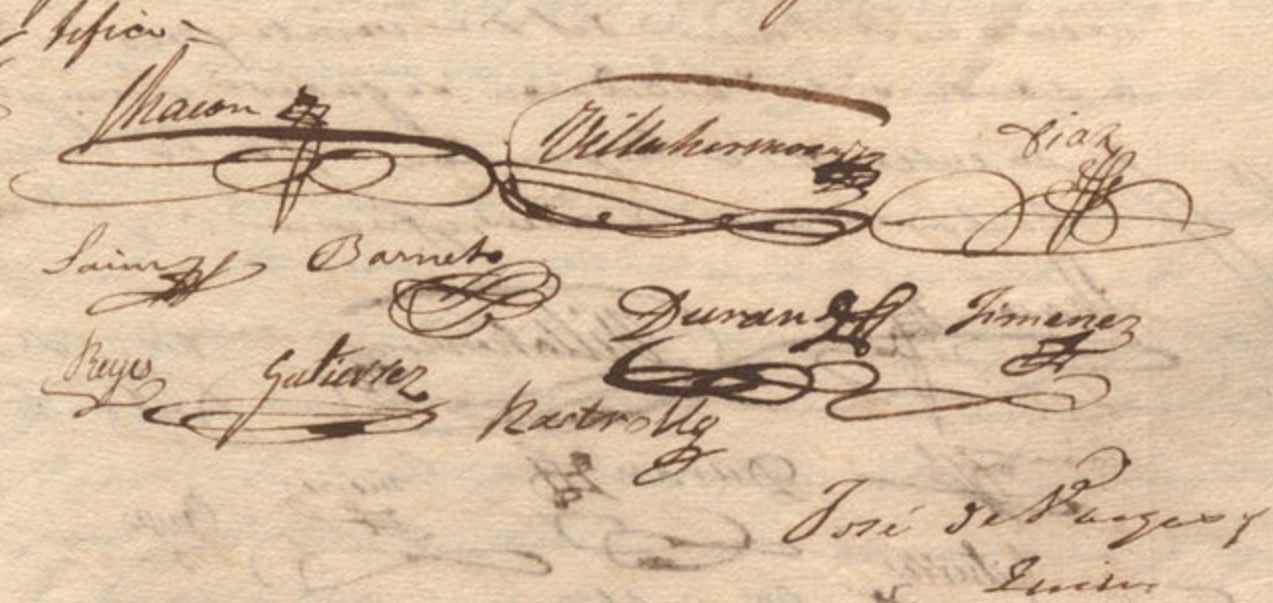 tifico =
Chacon Villahermosa Diaz
Sainz Barneto
Duran Jimenez
Reyes Gutierrez
Rastrollo
José de Vargas y